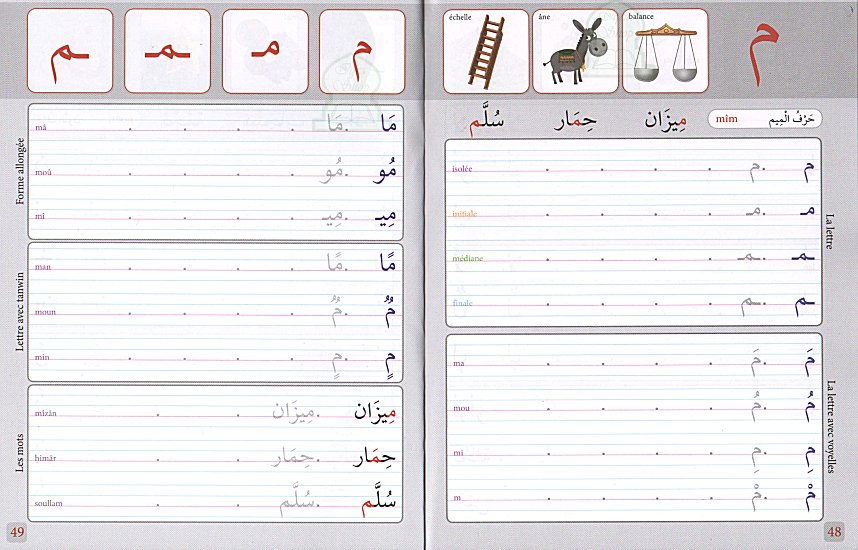 échelle âne balance م
سُلَّم حِمَار مِيزَان mîm حَرْفُ الْمِيم
La lettre
isolée م م
initiale مـ مـ
médiane ـمـ ـمـ
finale ـم ـم
La lettre avec voyelles
ma مَ مَ
mou مُ مُ
mi مِ مِ
m مْ مْ
48
م مـ ـمـ ـم
Forme allongée
mâ مَا مَا
moû مُو مُو
mî مِيـ مِيـ
Lettre avec tanwin
man مًا مًا
moun مٌ مٌ
min مٍ مٍ
Les mots
mîzân مِيزَان مِيزَان
ḥimâr حِمَار حِمَار
soullam سُلَّم سُلَّم
49